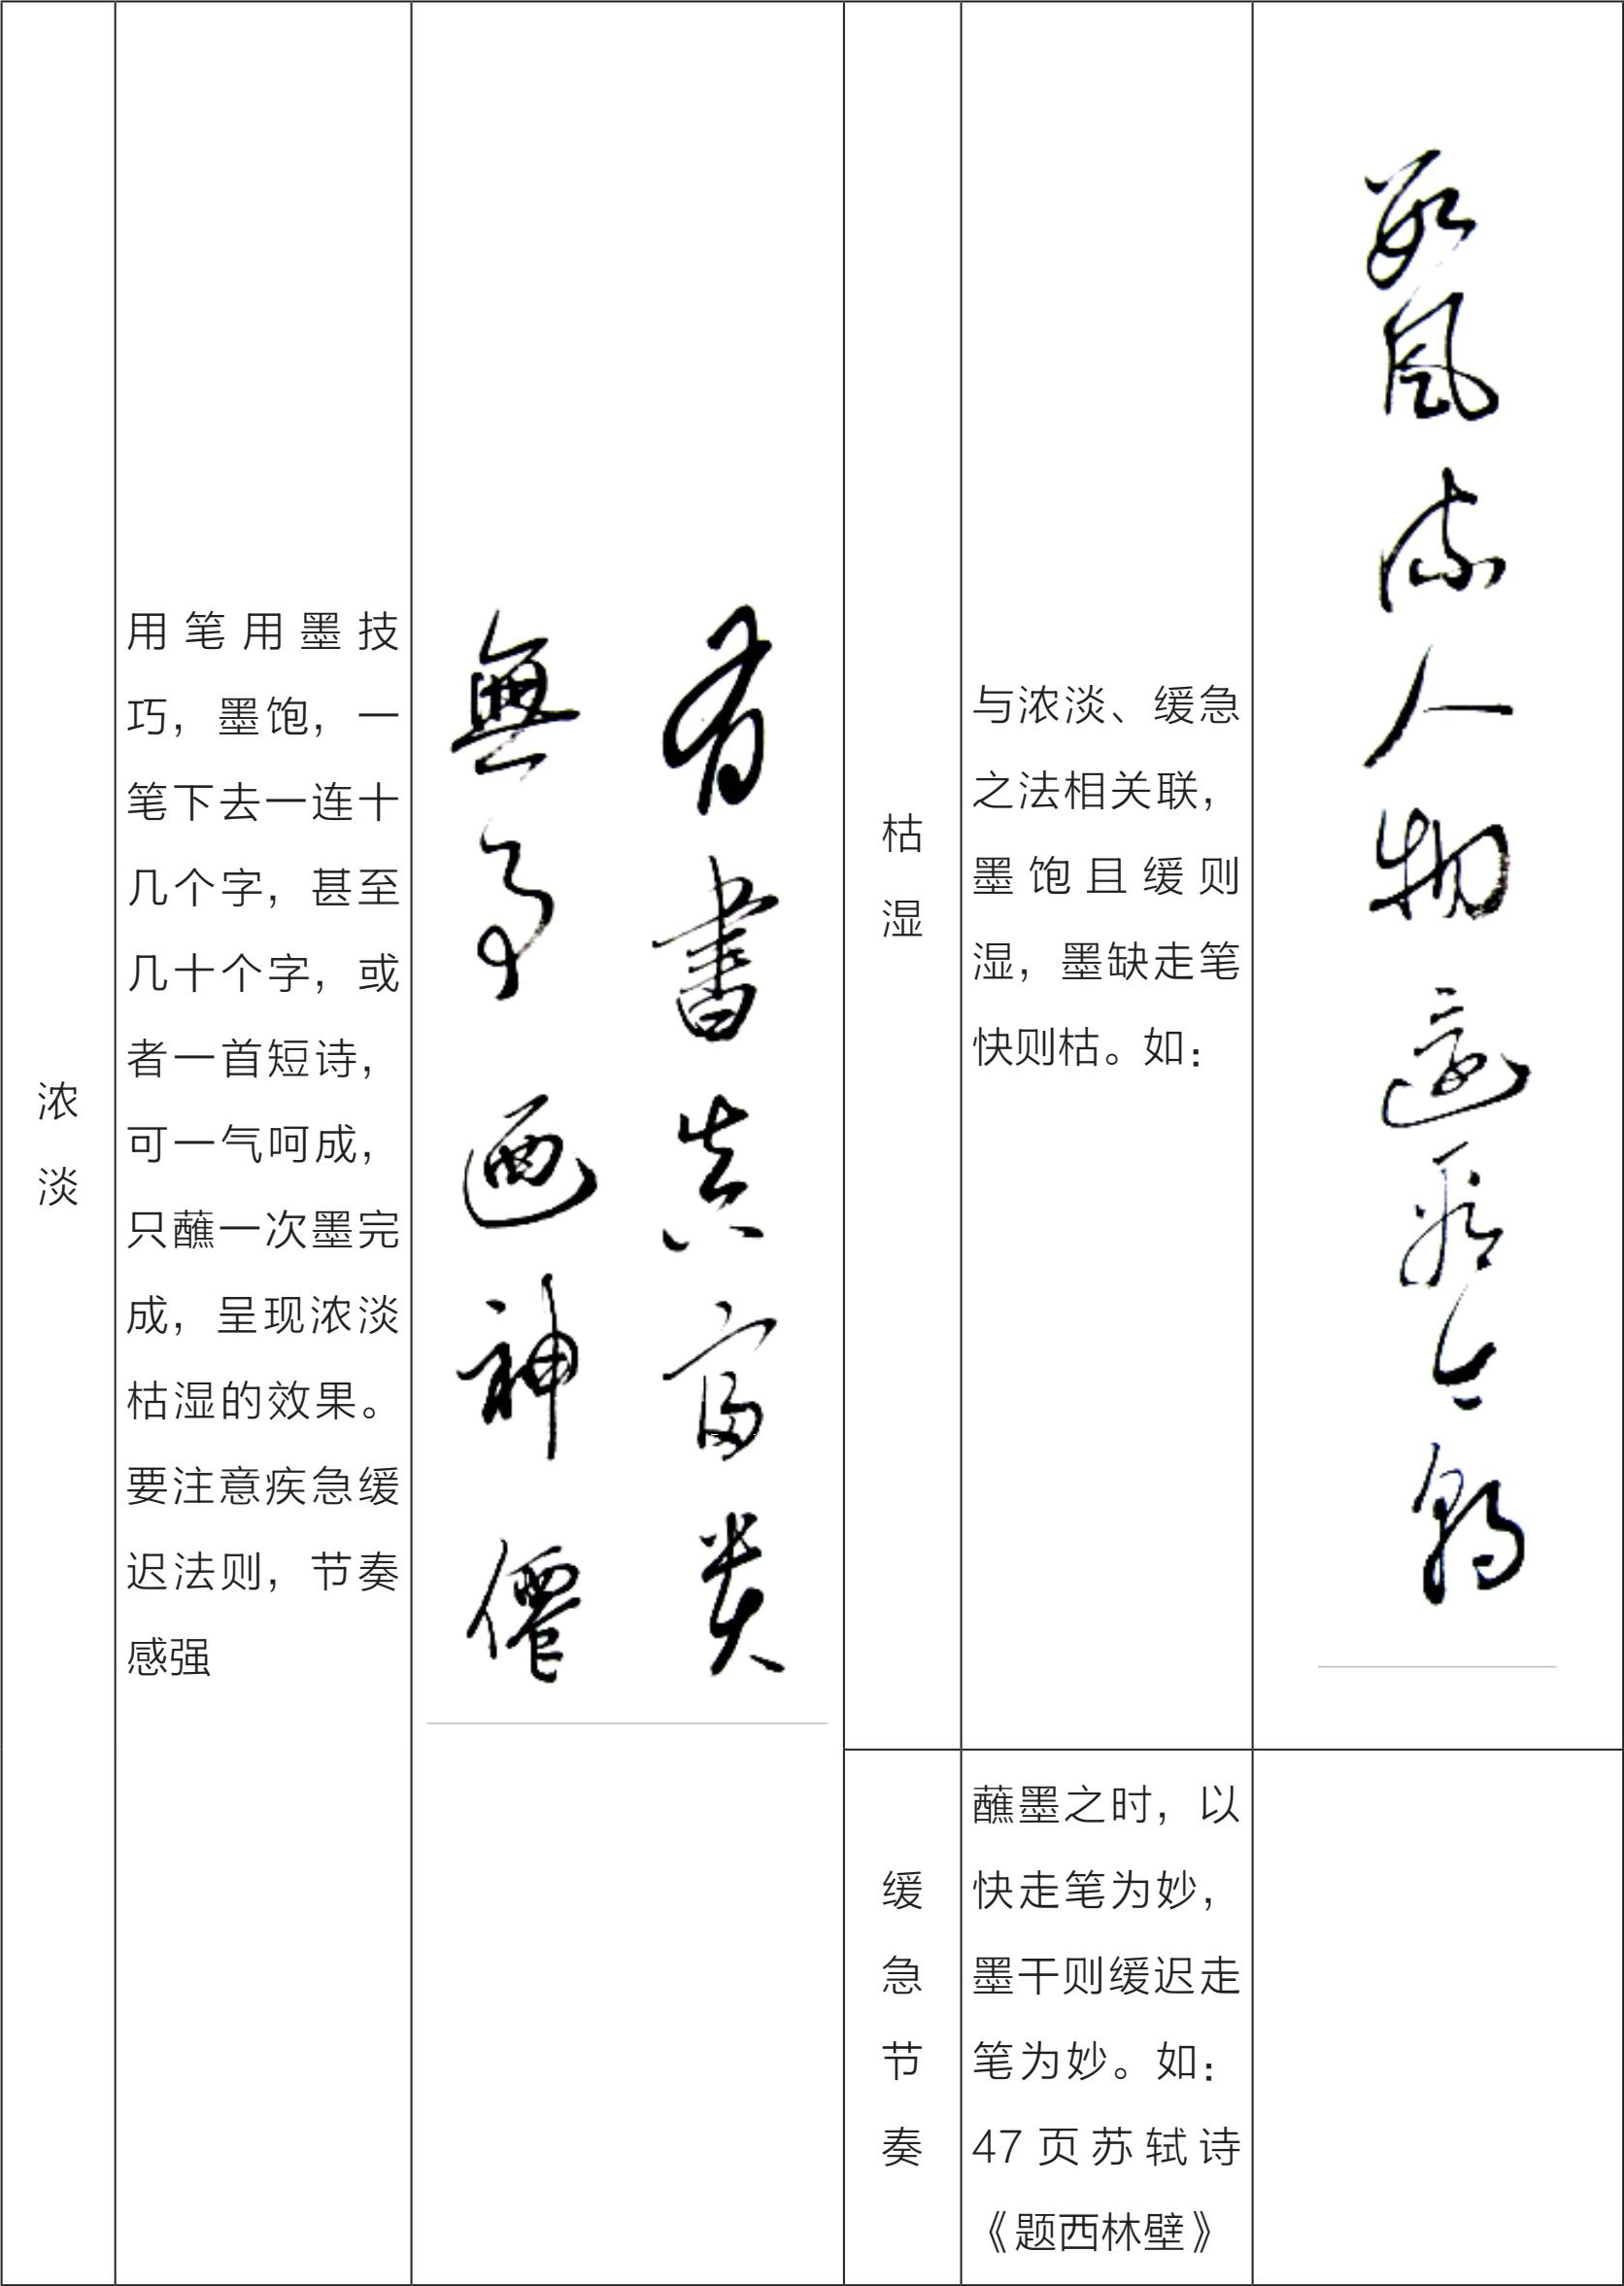 浓
淡
用笔用墨技
巧，墨饱，一
笔下去一连十
几个字，甚至
几十个字，或
者一首短诗，
可一气呵成，
只蘸一次墨完
成，呈现浓淡
枯湿的效果。
要注意疾急缓
迟法则，节奏
感强
有書真富贵
無事画神僊
枯
湿
与浓淡、缓急
之法相关联，
墨饱且缓则
湿，墨缺走笔
快则枯。如：
数风流人物还看今朝
缓
急
节
奏
蘸墨之时，以
快走笔为妙，
墨干则缓迟走
笔为妙。如：
47页苏轼诗
《题西林壁》